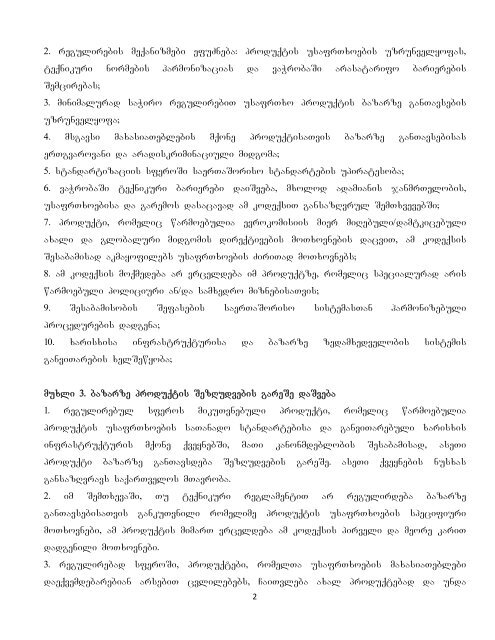 2. რეგულირების მექანიზმები ეფუძნება: პროდუქტის უსაფრთხოების უზრუნველყოფას,
ტექნიკური ნორმების ჰარმონიზაციას და ვაჭრობაში არასატარიფო ბარიერების
შემცირებას;
3. მინიმალურად საჭირო რეგულირებით უსაფრთხო პროდუქტის ბაზარზე განთავსების
უზრუნველყოფა;
4. მსგავსი მახასიათებლების მქონე პროდუქტისათვის ბაზარზე განთავსებისას
ერთგვაროვანი და არადისკრიმინაციული მიდგომა;
5. სტანდარტიზაციის სფეროში საერთაშორისო სტანდარტების უპირატესობა;
6. ვაჭრობაში ტექნიკური ბარიერები დაიშვება, მხოლოდ ადამიანის ჯანმრთელობის,
უსაფრთხოებისა და გარემოს დასაცავად ამ კოდექსით განსაზღვრულ შემთხვევებში;
7. პროდუქტი, რომელიც წარმოებულია ევროკომისიის მიერ მიღებული/დამტკიცებული
ახალი და გლობალური მიდგომის დირექტივების მოთხოვნების დაცვით, ამ კოდექსის
შესაბამისად აკმაყოფილებს უსაფრთხოების ძირითად მოთხოვნებს;
8. ამ კოდექსის მოქმედება არ ვრცელდება იმ პროდუქტზე, რომელიც სპეციალურად არის
წარმოებული პოლიციური ან/და სამხედრო მიზნებისათვის;
9. შესაბამისობის შეფასების საერთაშორისო სისტემასთან ჰარმონიზებული
პროცედურების დადგენა;
10. ხარისხისა ინფრასტრუქტურისა და ბაზარზე ზედამხედველობის სისტემის
განვითარების ხელშეწყობა;
მუხლი 3. ბაზარზე პროდუქტის შეზღუდვების გარეშე დაშვება
1. რეგულირებულ სფეროს მიკუთვნებული პროდუქტი, რომელიც წარმოებულია
პროდუქტის უსაფრთხოების სათანადო სტანდარტებისა და განვითარებული ხარისხის
ინფრასტრუქტურის მქონე ქვეყნებში, მათი კანონმდებლობის შესაბამისად, ასეთი
პროდუქტი ბაზარზე განთავსდება შეზღუდვების გარეშე. ასეთი ქვეყნების ნუსხას
განსაზღვრავს საქართველოს მთავრობა.
2. იმ შემთხვევაში, თუ ტექნიკური რეგლამენტით არ რეგულირდება ბაზარზე
განთავსებისათვის განკუთვნილი რომელიმე პროდუქტის უსაფრთხოების სპეციფიური
მოთხოვნები, ამ პროდუქტის მიმართ ვრცელდება ამ კოდექსის პირველი და მეორე კარით
დადგენილი მოთხოვნები.
3. რეგულირებად სფეროში, პროდუქტები, რომელთა უსაფრთხოების მახასიათებლები
დაექვემდებარებიან არსებით ცვლილებებს, ჩაითვლება ახალ პროდუქტებად და უნდა
2